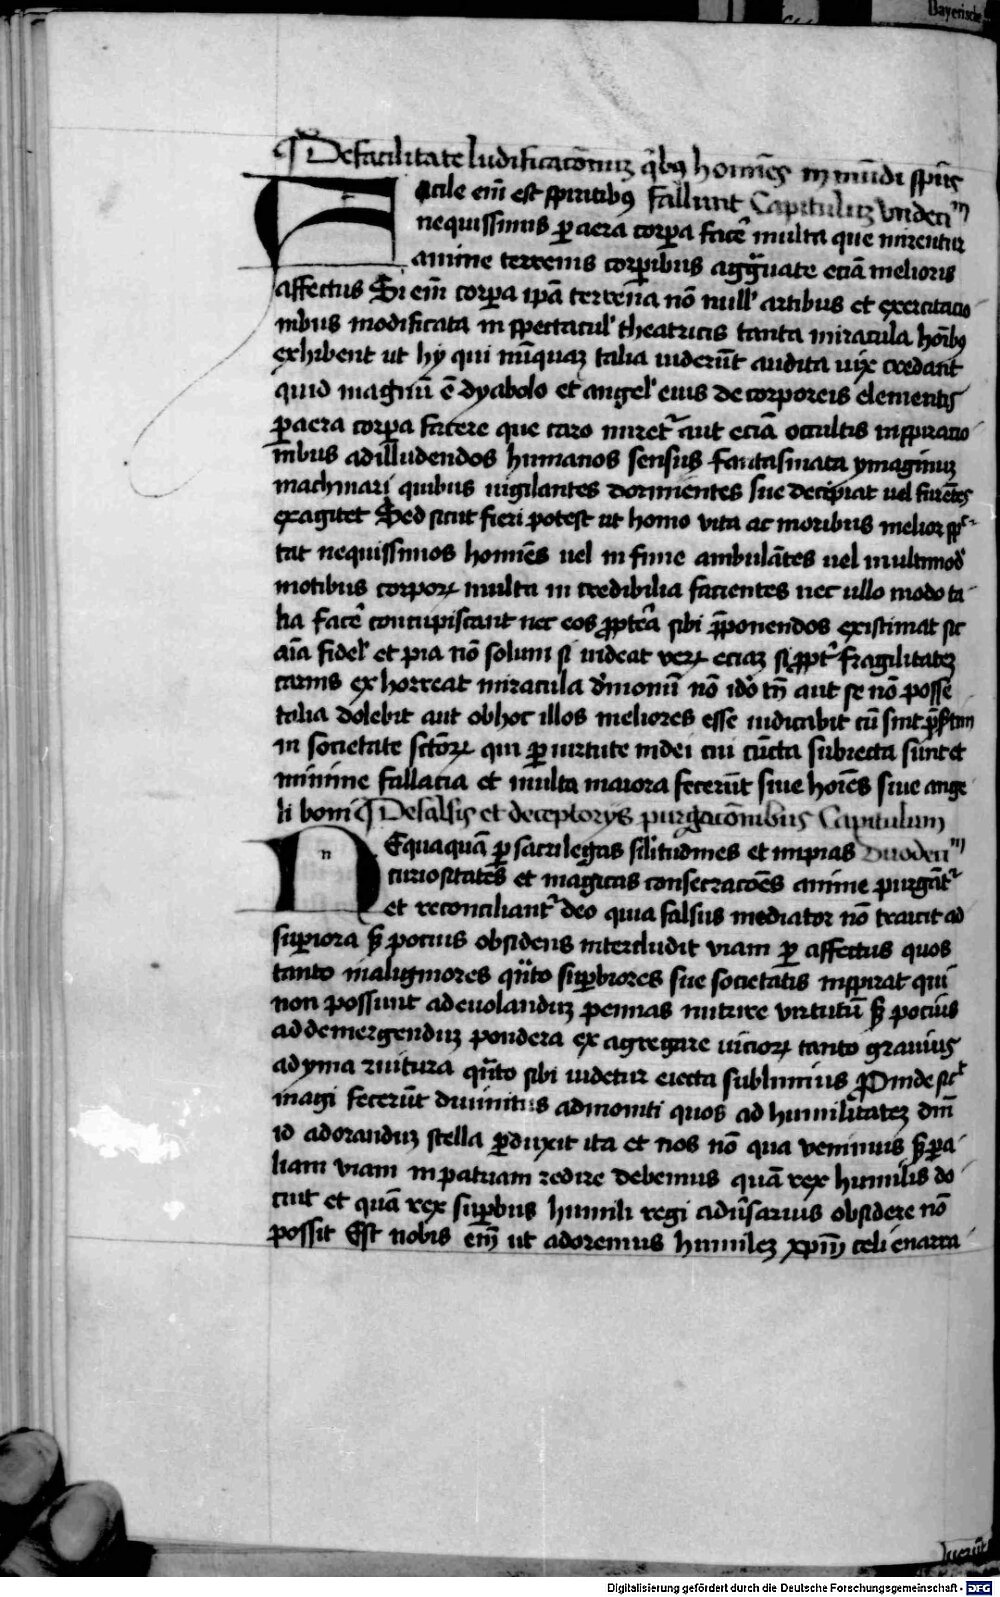 Bayerische
¶ De facilitate ludificac̄onuꝫ q̄bꝰ homīes inmūdi spūs
Facile em̄ est spiritibꝰ fallunt Capituluꝫ vndeciᵐ
nequissimis ꝑ aera corꝑa facē multa que mirentur
anime terrenis corꝑibus aggͣuate eciā melioris
affectus Si em̄ corꝑa ipā terrena nō null' artibus et exercitacio
nibus modificata in spectacul' theatricis tanta miracula hoībꝰ
exhibent ut hy qui nūquaꝫ talia uiderūt audita uix credant
quid magnū ē dyabolo et angel' eius de corporeis elementis
ꝑ aera corꝑa facere que caro miretᷣ aut eciā occultis inspiracio
nibus ad illudendos humanos sensus fantasmata ymaginuꝫ
machinari quibus uigilantes dormientes sue decipiat uel furētes
exagitet Sed sicut fieri potest ut homo vita ac moribus melior spc̄
tat nequissimos homīes uel in fune ambulātes uel multimod'
motibus corporꝝ multa in credibilia facientes nec ullo modo ta
lia facē concupiscant nec eos ꝓpterā sibi p̄ponendos existimat sic
aīa fidel' et pia nō solum si uideat verꝝ eciaꝫ si ꝓptᷣ fragilitateꝫ
carnis ex horreat miracula d'monū nō idō tn̄ aut se nō posse
talia dolebit aut ob hoc illos meliores esse iudicabit cū sint p̄sertim
in societate sctōrꝝ qui ꝑ uirtute in dei cui cūcta subiecta sunt et
minime fallacia et multa maiora fecerūt siue hoīes siue ange
li boni ¶ De falsis et deceptorys purgac̄onibus Capitulum
Nequaquā ꝑ sacrilegas sīlitudines et impias Duodeciᵐ
curiositates et magicas consecrac̄oēs anime purgātᷣ
et reconciliantᷣ deo quia falsus mediator nō traicit ad
suꝑiora sꝫ pocius obsidens intercludit viam ꝑ affectus quos
tanto maligniores qͣnto suꝑbiores sue societatis inspirat qui
non possunt ad euolanduꝫ pennas nutrire virtutū sꝫ pocius
ad demergenduꝫ pondera ex agregare uiciorꝝ tanto grauius
ad yma ruitura qͣnto sibi uidetur euecta sublimius Proinde sic̄
magi fecerūt diuinitus admoniti quos ad humilitateꝫ dm̄
id adoranduꝫ stella ꝑduxit ita et nos nō qua venimus sꝫ ꝑ a
liam viam in patriam redire debemus quā rex humilis do
cuit et quā rex suꝑbus humili regi adūsarius obsidere nō
possit Est nobis em̄ ut adoremus humileꝫ xp̄m celi enarra
Digitalisierung gefördert durch die Deutsche Forschungsgemeinschaft - DFG